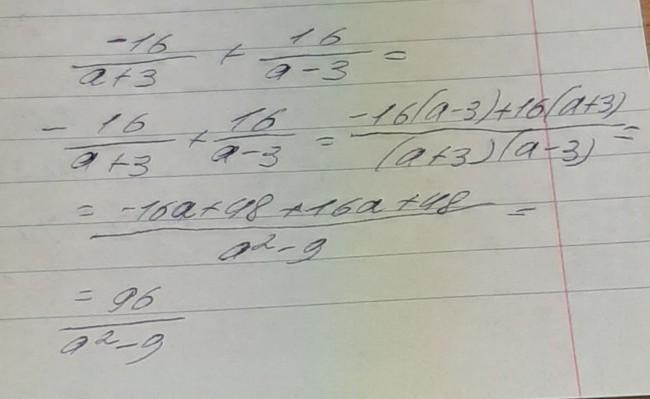 -16/(a+3) + 16/(a-3) =
- 16/(a+3) + 16/(a-3) = (-16(a-3)+16(a+3))/((a+3)(a-3)) =
= (-16a+48+16a+48)/(a²-9) =
= 96/(a²-9)